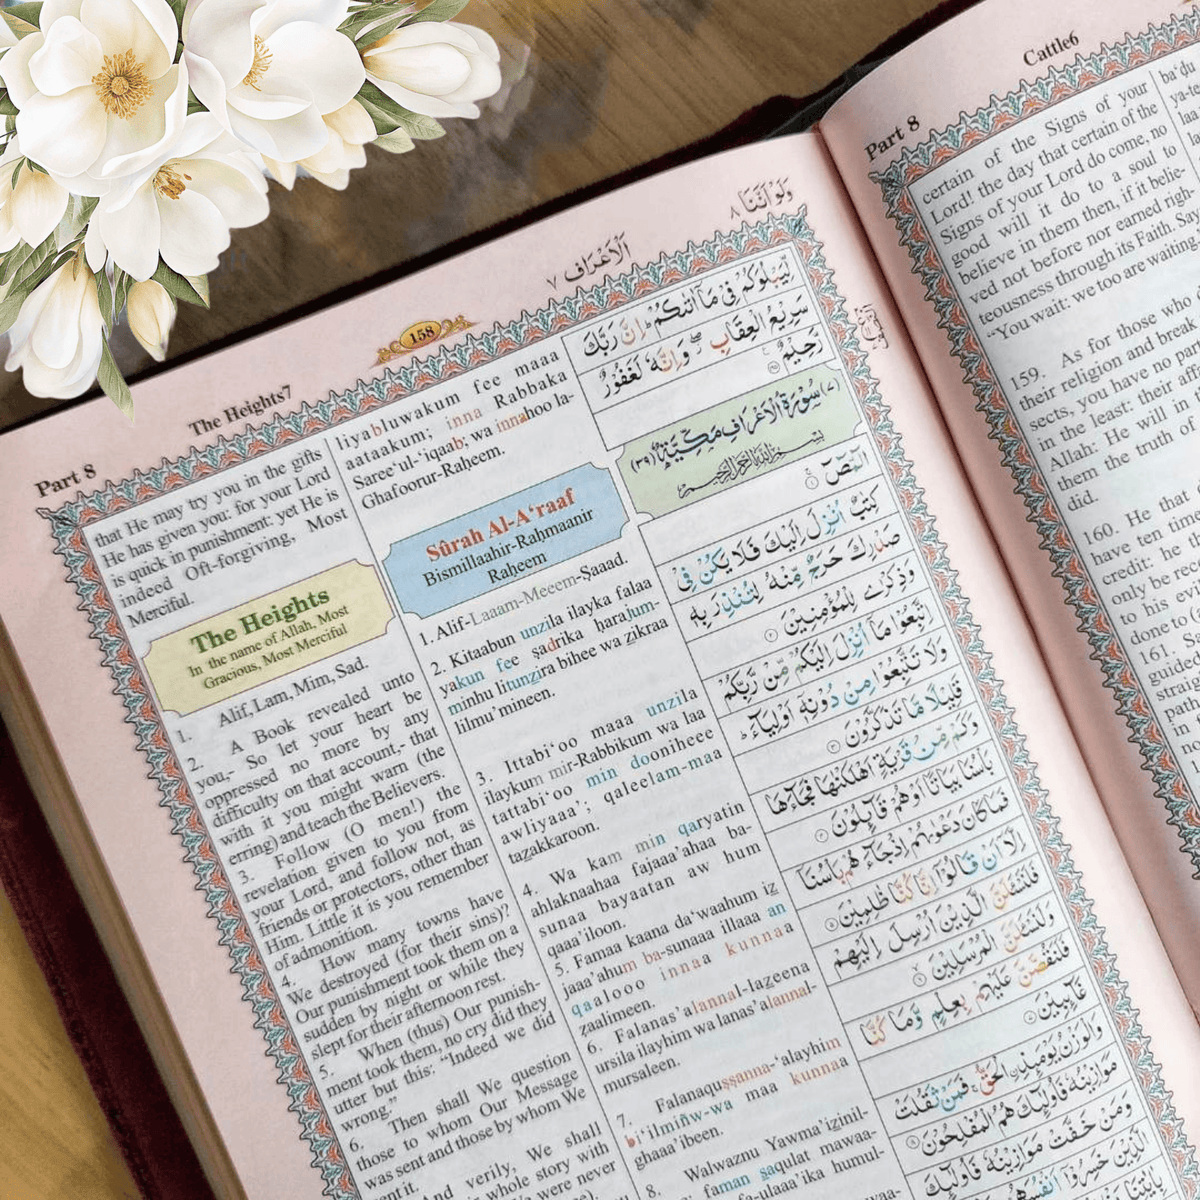 Part 8
The Heights7
158
الاعراف ٧
ولو اننا ٨
that He may try you in the gifts
He has given you: for your Lord
is quick in punishment: yet He is
indeed Oft-forgiving, Most
Merciful.
The Heights
In the name of Allah, Most
Gracious, Most Merciful
1. Alif, Lam, Mim, Sad.
2. A Book revealed unto
you,- So let your heart be
oppressed no more by any
difficulty on that account,- that
with it you might warn (the
erring) and teach the Believers.
3. Follow (O men!) the
revelation given to you from
your Lord, and follow not, as
friends or protectors, other than
Him. Little it is you remember
of admonition.
4. How many towns have
We destroyed (for their sins)?
Our punishment took them on a
sudden by night or while they
slept for their afternoon rest.
5. When (thus) Our punish-
ment took them, no cry did they
utter but this: “Indeed we did
wrong.”
6. Then shall We question
those to whom Our Message
was sent and those by whom We
sent it.
And verily, We shall
whole story with
were never
liyabluwakum fee maaa
aataakum; inna Rabbaka
Saree‘ul-‘iqaab; wa innahoo la-
Ghafoorur-Raḥeem.
Sûrah Al-A‘raaf
Bismillaahir-Raḥmaanir
Raḥeem
1. Alif-Laaam-Meeem-Ṣaaad.
2. Kitaabun unzila ilayka falaa
yakun fee ṣadrika ḥarajum-
minhu litunzira bihee wa zikraa
lilmu’mineen.
3. Ittabi‘oo maaa unzila
ilaykum mir-Rabbikum wa laa
tattabi‘oo min dooniheee
awliyaaa’; qaleelam-maa
tazakkaroon.
4. Wa kam min qaryatin
ahlaknaahaa fajaaa’ahaa ba-
sunaa bayaatan aw hum
qaaa’iloon.
5. Famaa kaana da‘waahum iz
jaaa’ahum ba-sunaaa illaaa an
qaalooo innaa kunnaa
zaalimeen.
6. Falanas’alannal-lazeena
ursila ilayhim wa lanas’alannal-
mursaleen.
7. Falanaquṣṣanna-‘alayhim
bi‘ilmiñw-wa maa kunnaa
ghaaa’ibeen.
8. Walwaznu Yawma’izinil-
faman saqulat mawaa-
fa-ulaaa’ika humul-
لِيَبْلُوَكُمْ فِي مَا آتٰىكُمْ اِنَّ رَبَّكَ
سَرِيعُ الْعِقَابِ وَاِنَّهٗ لَغَفُورٌ
رَحِيمٌ
(٧) سُورَةُ الْاَعْرَافِ مَكِّيَّةٌ (٣٩)
بسم الله الرحمن الرحيم
الٓمٓصٓ
كِتٰبٌ اُنْزِلَ اِلَيْكَ فَلَا يَكُنْ فِي
صَدْرِكَ حَرَجٌ مِّنْهُ لِتُنْذِرَ بِهٖ
وَذِكْرٰى لِلْمُؤْمِنِينَ
اِتَّبِعُوا مَا اُنْزِلَ اِلَيْكُمْ مِّنْ رَّبِّكُمْ
وَلَا تَتَّبِعُوا مِنْ دُونِهٖ اَوْلِيَاءَ
قَلِيلًا مَّا تَذَكَّرُونَ
وَكَمْ مِّنْ قَرْيَةٍ اَهْلَكْنٰهَا فَجَاءَهَا
بَاْسُنَا بَيَاتًا اَوْ هُمْ قَائِلُونَ
فَمَا كَانَ دَعْوٰىهُمْ اِذْ جَاءَهُمْ بَاْسُنَا
اِلَّا اَنْ قَالُوا اِنَّا كُنَّا ظٰلِمِينَ
فَلَنَسْئَلَنَّ الَّذِينَ اُرْسِلَ اِلَيْهِمْ
وَلَنَسْئَلَنَّ الْمُرْسَلِينَ
فَلَنَقُصَّنَّ عَلَيْهِمْ بِعِلْمٍ وَّمَا كُنَّا
غَائِبِينَ
وَالْوَزْنُ يَوْمَئِذِ الْحَقُّ فَمَنْ ثَقُلَتْ
مَوَازِينُهٗ فَاُولٰئِكَ هُمُ الْمُفْلِحُونَ
وَمَنْ خَفَّتْ مَوَازِينُهٗ فَاُولٰئِكَ
الَّذِينَ خَسِرُوا
Part 8
Cattle6
certain of the Signs of your
Lord! the day that certain of the
Signs of your Lord do come, no
good will it do to a soul to
believe in them then, if it belie-
ved not before nor earned righ-
teousness through its Faith. Say
“You wait: we too are waiting
159. As for those who
their religion and break
sects, you have no par
in the least: their aff
Allah: He will in
them the truth of
did.
160. He that
have ten time
credit: he
only be rec
to his ev
done to
161. S
guide
strai
path
in r
ba‘ḍu
ya-ta